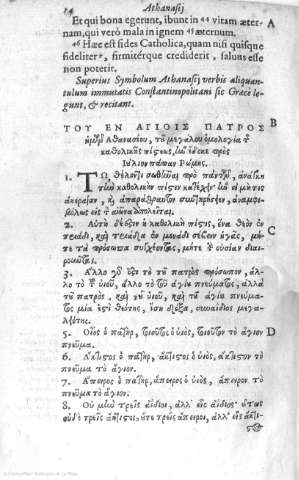 14 Athanasij
Et qui bona egerunt, ibunt in 44 vitam æter- A
nam, qui verò mala in ignem 45 æternum.
46 Hæc est fides Catholica, quam nisi quisque
fideliter, firmitérque crediderit, saluus esse
non poterit.
Superius Symbolum Athanasij verbis aliquan-
tulum immutatis Constantinopolitani sic Græcè le-
gunt, & recitant.
ΤΟΥ ΕΝ ΑΓΙΟΙΣ ΠΑΤΡΟΣ B
ἡμῶν Ἀθανασίου, τοῦ μεγάλου ὁμολογία τῆς
καθολικῆς πίστεως, ἣν ἔδωκε πρὸς
Ἰούλιον πάπαν Ῥώμης.
1. Τῷ θέλοντι σωθῆναι πρὸ πάντων, ἀνάγκη
τὴν καθολικὴν πίστιν κατέχειν ἣν εἰ μήτις
ἀκεραίαν, καὶ ἀπαράθραυστον συντηρήσῃεν, ἀναμφι-
βόλως εἰς τ αἰῶνα ἀπολεῖται.
2. Αὐτὴ δέ ἐστιν ἡ καθολικὴ πίστις, ἵνα θεὸν ἐν C
τριάδι, καὶ τριάδα ἐν μονάδι σέβων ἐσμὲν, μή-
τε τὰ πρόσωπα συγχέοντες, μήτε τ οὐσίαν διαι-
ροῦντες.
3. Ἄλλο γάρ ἐστι τὸ τοῦ πατρὸς πρόσωπον, ἄλ-
λο τὸ τ υἱοῦ, ἄλλο τὸ τοῦ ἁγίου πνεύματος, ἀλλὰ
τοῦ πατρὸς, καὶ τοῦ υἱοῦ, καὶ τοῦ ἁγίου πνεύμα-
τος μία ἐστὶ θεότης, ἴση δόξα, συναίδιος μεγα-
λειότης.
5. Οἷος ὁ πατὴρ, τοιοῦτος ὁ υἱὸς, τοιοῦτον τὸ ἅγιον D
πνεῦμα.
6. Ἄκτιστος ὁ πατὴρ, ἄκτιστος ὁ υἱὸς, ἄκτιστον τὸ
πνεῦμα τὸ ἅγιον.
7. Ἄπειρος ὁ πατὴρ, ἄπειρος ὁ υἱὸς, ἄπειρον τὸ
πνεῦμα τὸ ἅγιον.
8. Οὐ μὴν τρεῖς ἀΐδιοι, ἀλλ' εἷς ἀΐδιος· οὕτως
οὐδὲ τρεῖς ἄκτιστοι, οὔτε τρεῖς ἄπειροι, ἀλλ' εἷς ἄκτι-
στος